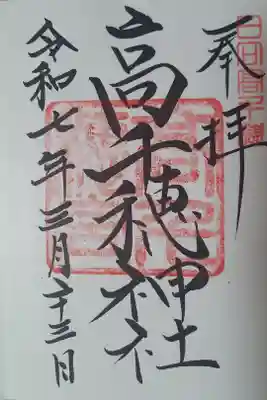 奉拝
高千穂神社
令和七年三月二十三日